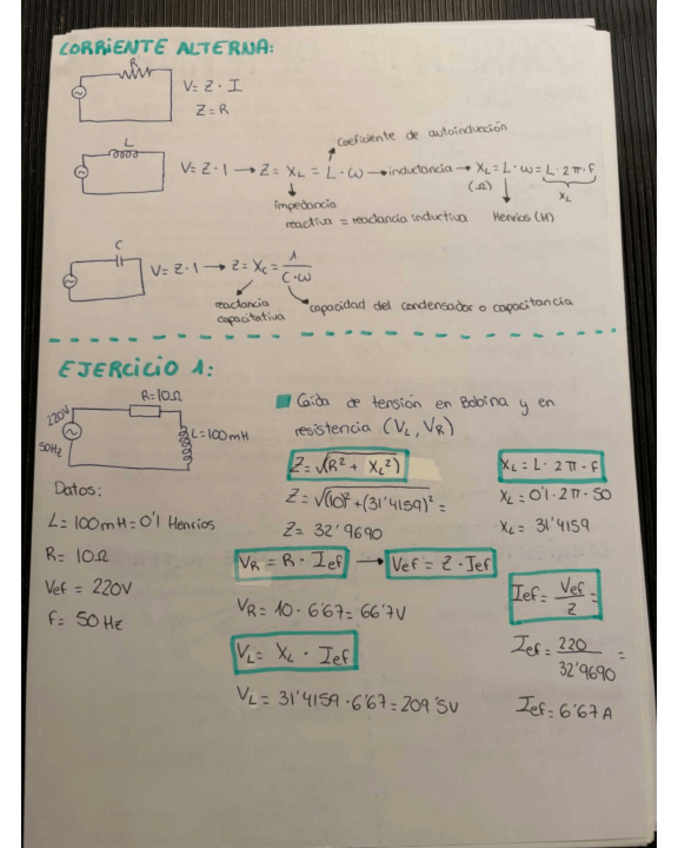 CORRIENTE ALTERNA:
R
V= Z · I
Z = R
coeficiente de autoinducción
L
V= Z · I → Z = XL = L · ω → inductancia → XL = L · ω = L · 2π · f
(Ω)
XL
impedancia
reactiva = reactancia inductiva
Henrios (H)
C
V= Z · I → Z = Xc = 1/(C·ω)
reactancia
capacitativa
capacidad del condensador o capacitancia
EJERCICIO 1:
R=10Ω
220V
50Hz
L=100mH
Caída de tensión en Bobina y en
resistencia (VL, VR)
Z = √(R² + XL²)
XL = L · 2π · f
Z = √(10)² + (31'4159)² =
XL = 0'1 · 2π · 50
Z = 32'9690
XL = 31'4159
Datos:
L= 100mH = 0'1 Henrios
R= 10Ω
Vef = 220V
f= 50 Hz
VR = R · Ief → Vef = Z · Ief
Ief = Vef/Z =
VR = 10 · 6'67 = 66'7V
VL = XL · Ief
Ief = 220/32'9690 =
VL = 31'4159 · 6'67 = 209'5V
Ief = 6'67 A